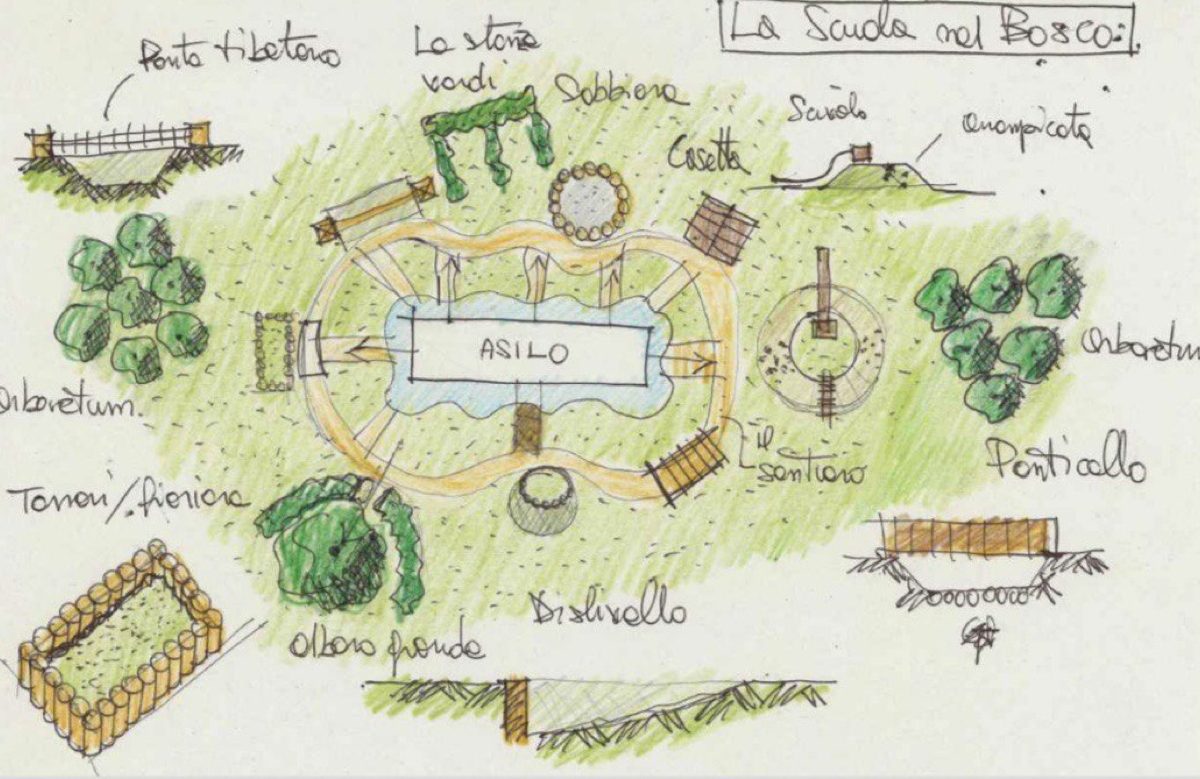 La Scuola nel Bosco:
Ponte tibetano
Le stanze
verdi
Sabbiera
Casetta
Scivolo
arrampicata
ASILO
Arboretum
Arboretum.
il
sentiero
Ponticello
Terreni/fioriera
Albero grande
Dislivello